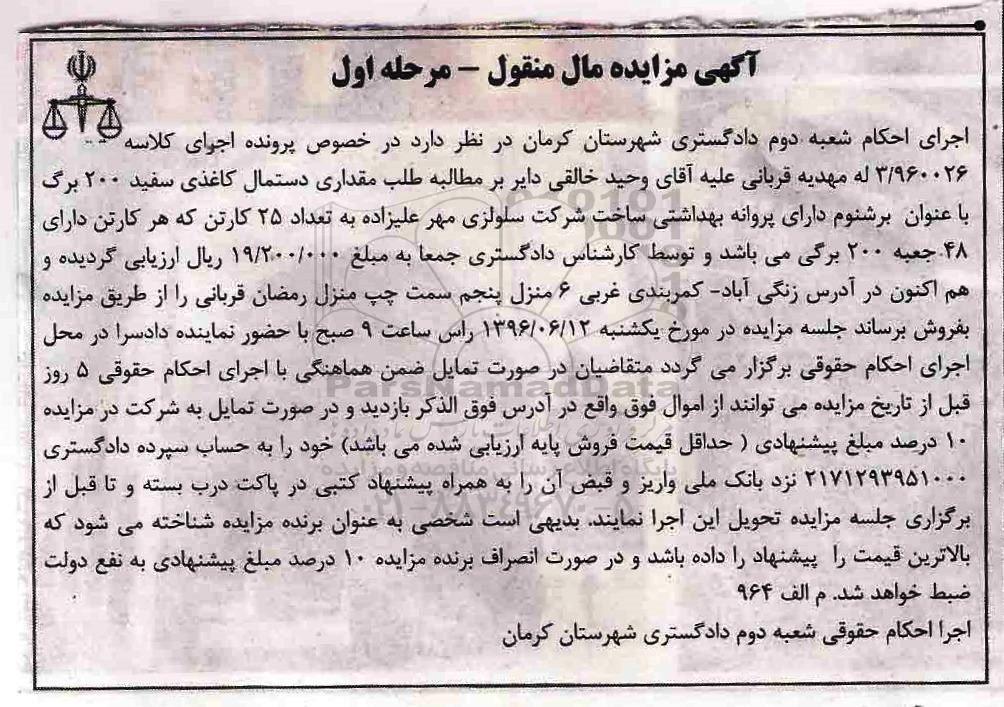 آگهی مزایده مال منقول – مرحله اول
اجرای احکام شعبه دوم دادگستری شهرستان کرمان در نظر دارد در خصوص پرونده اجرای کلاسه
۳/۹۶۰۰۲۶ له مهدیه قربانی علیه آقای وحید خالقی دایر بر مطالبه طلب مقداری دستمال کاغذی سفید ۲۰۰ برگ
با عنوان برشنوم دارای پروانه بهداشتی ساخت شرکت سلولزی مهر علیزاده به تعداد ۲۵ کارتن که هر کارتن دارای
۴۸ جعبه ۲۰۰ برگی می باشد و توسط کارشناس دادگستری جمعا به مبلغ ۱۹/۲۰۰/۰۰۰ ریال ارزیابی گردیده و
هم اکنون در آدرس زنگی آباد- کمربندی غربی ۶ منزل پنجم سمت چپ منزل رمضان قربانی را از طریق مزایده
بفروش برساند جلسه مزایده در مورخ یکشنبه ۱۳۹۶/۰۶/۱۲ راس ساعت ۹ صبح با حضور نماینده دادسرا در محل
اجرای احکام حقوقی برگزار می گردد متقاضیان در صورت تمایل ضمن هماهنگی با اجرای احکام حقوقی ۵ روز
قبل از تاریخ مزایده می توانند از اموال فوق واقع در آدرس فوق الذکر بازدید و در صورت تمایل به شرکت در مزایده
۱۰ درصد مبلغ پیشنهادی ( حداقل قیمت فروش پایه ارزیابی شده می باشد) خود را به حساب سپرده دادگستری
۲۱۷۱۲۹۳۹۵۱۰۰۰ نزد بانک ملی واریز و قبض آن را به همراه پیشنهاد کتبی در پاکت درب بسته و تا قبل از
برگزاری جلسه مزایده تحویل این اجرا نمایند. بدیهی است شخصی به عنوان برنده مزایده شناخته می شود که
بالاترین قیمت را پیشنهاد را داده باشد و در صورت انصراف برنده مزایده ۱۰ درصد مبلغ پیشنهادی به نفع دولت
ضبط خواهد شد. م الف ۹۶۴
اجرا احکام حقوقی شعبه دوم دادگستری شهرستان کرمان
ParsNamadData
پایگاه اطلاع رسانی مناقصه و مزایده